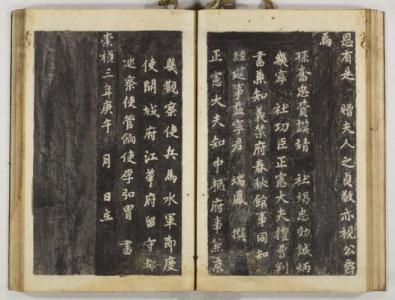 恩有是 贈夫人之貞敬亦視公爵
焉
孫奮忠賛謨靖 社竭忠効誠炳
幾寧 社功臣正憲大夫禮曹判
書兼知義禁府春秋館事同知
經筵事益寧君 瑞鳳 撰
正憲大夫知中樞府事兼京
畿觀察使兵馬水軍節度
使開城府江華府留守都
巡察使管餉使李弘胄 書
崇禎三年庚午 月 日立